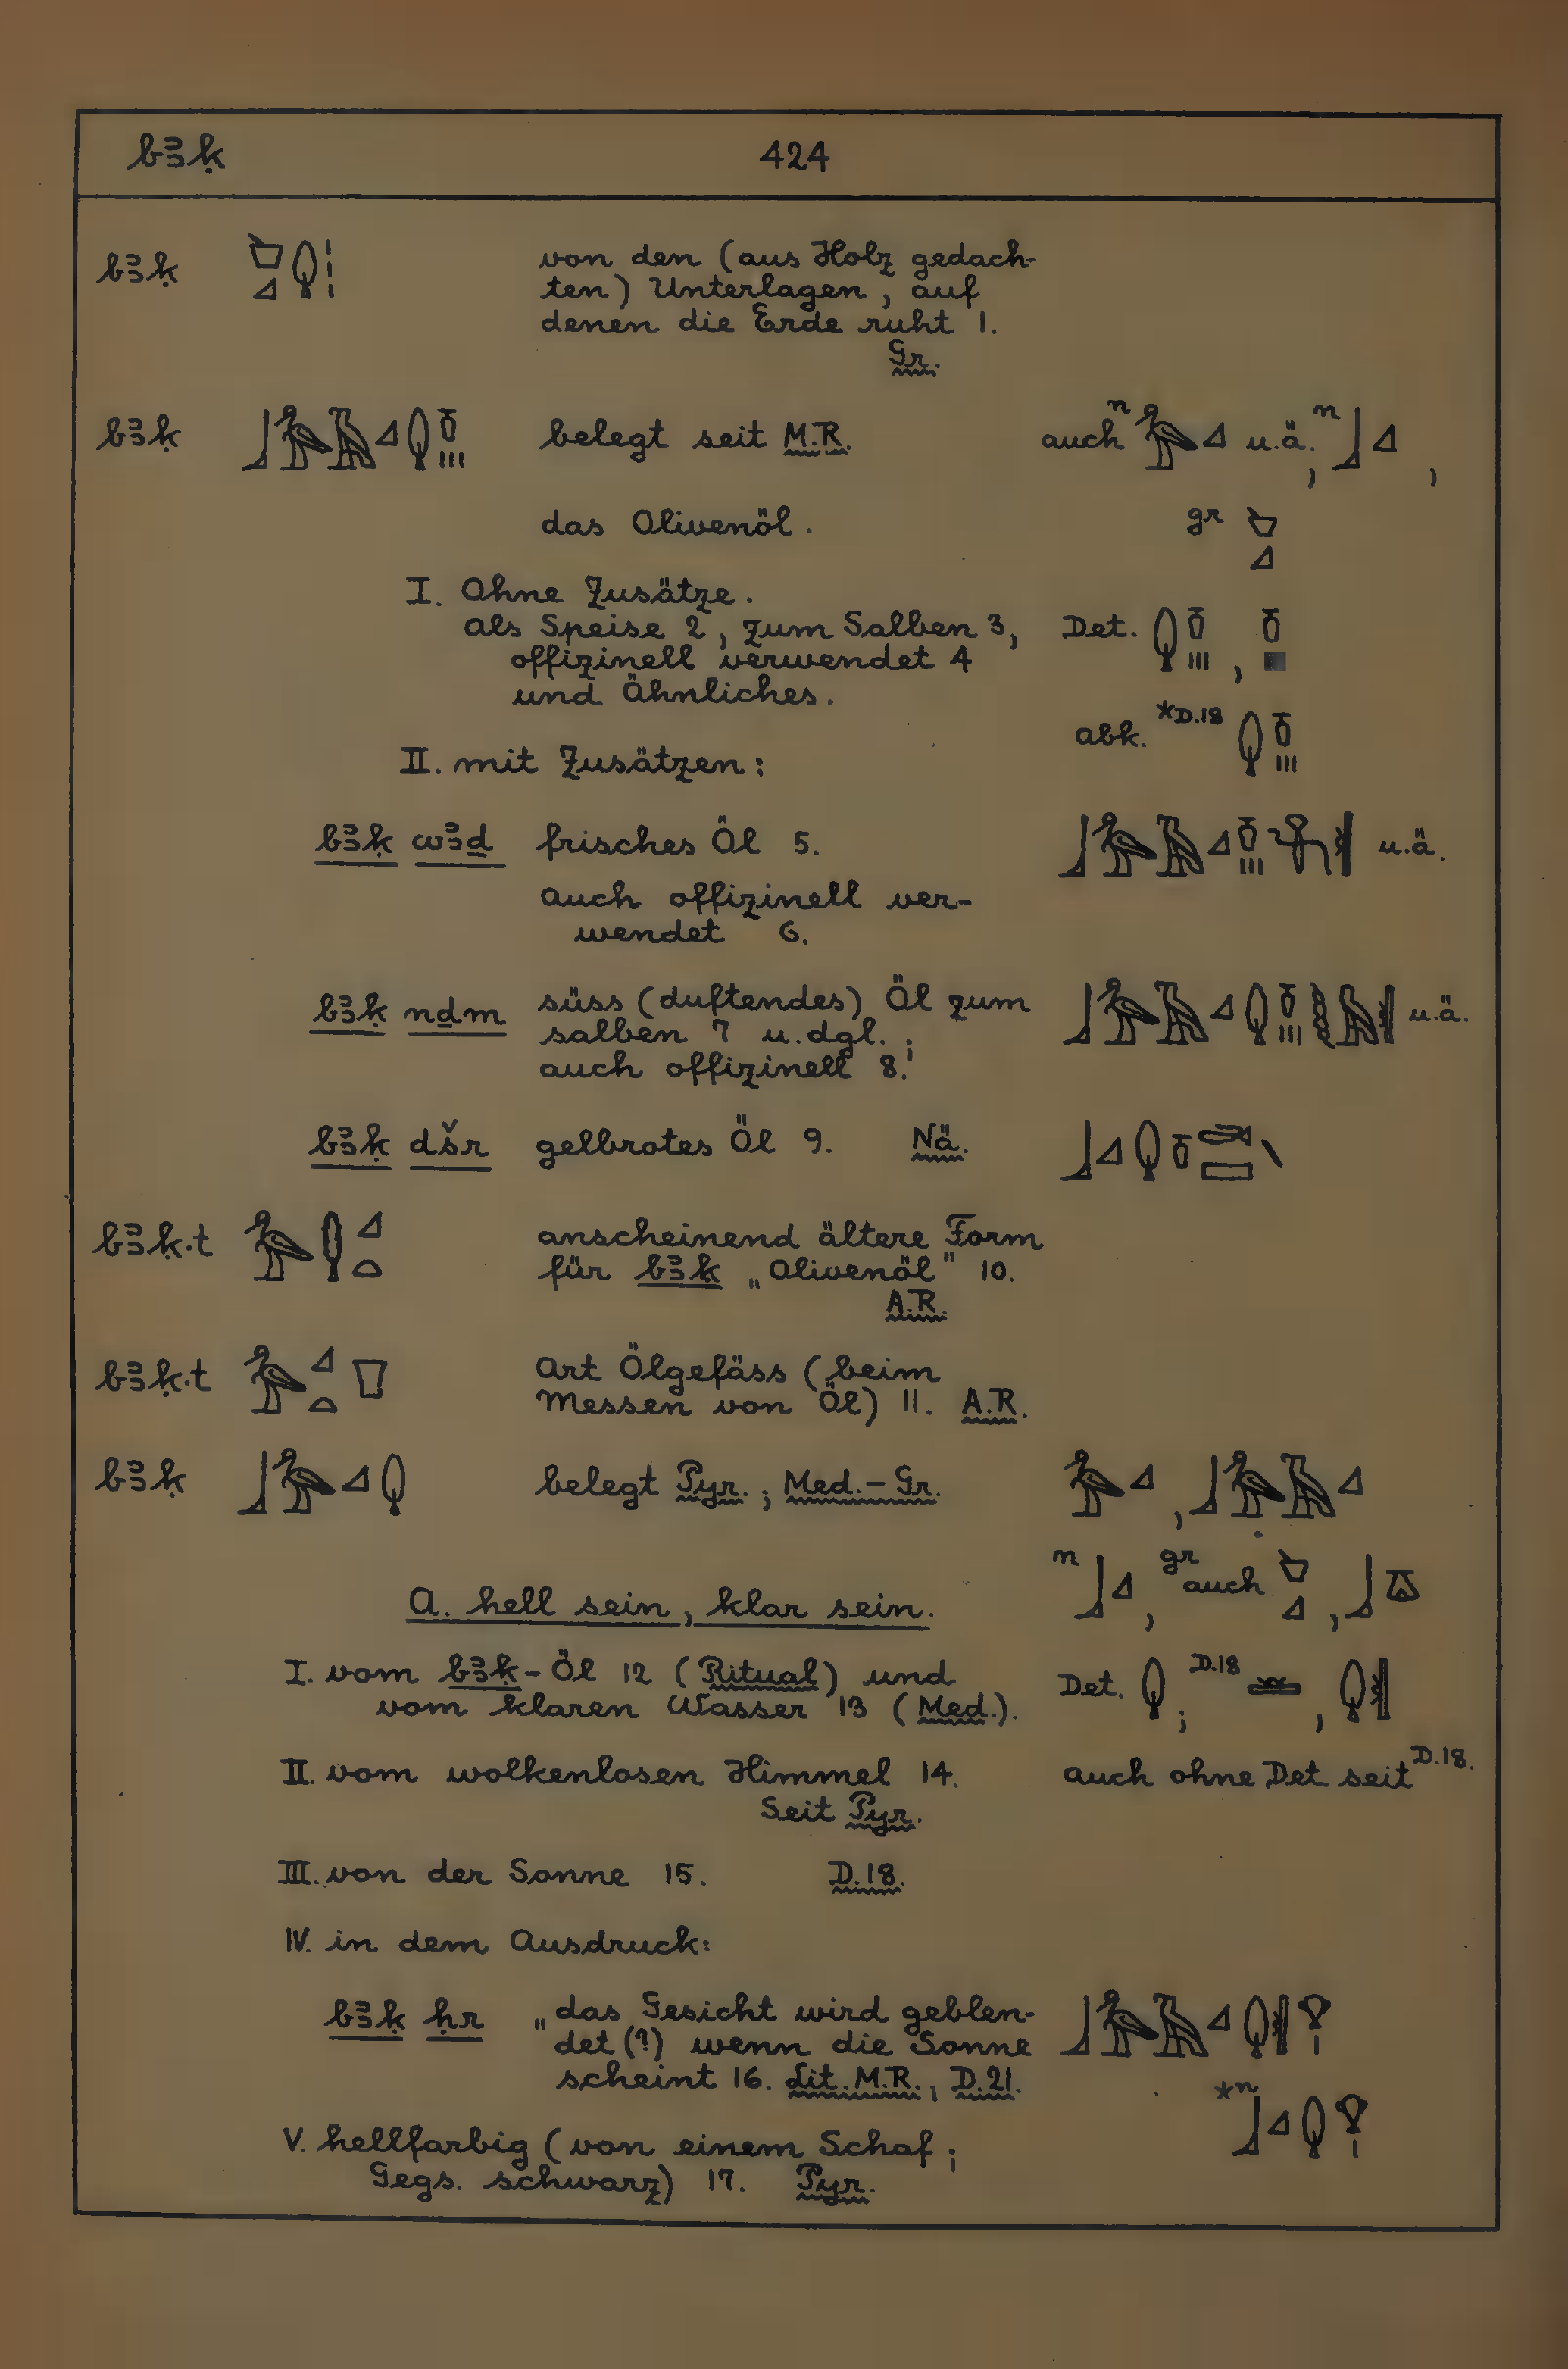 bꜣḳ 424
bꜣḳ von den (aus Holz gedach-
ten) Unterlagen, auf
denen die Erde ruht 1.
Gr.
bꜣḳ belegt seit M.R. auch n u.ä., n ,
das Olivenöl. gr
I. Ohne Zusätze.
als Speise 2, zum Salben 3, Det. ,
offizinell verwendet 4
und Ähnliches.
abk. *D.18
II. mit Zusätzen:
bꜣḳ wꜣḏ frisches Öl 5. u.ä.
auch offizinell ver-
wendet 6.
bꜣḳ nḏm süss (duftendes) Öl zum u.ä.
salben 7 u.dgl.;
auch offizinell 8.
bꜣḳ dšr gelbrotes Öl 9. Nä.
bꜣḳ.t anscheinend ältere Form
für bꜣḳ „Olivenöl" 10.
A.R.
bꜣḳ.t Art Ölgefäss (beim
Messen von Öl) 11. A.R.
bꜣḳ belegt Pyr.; Med.-Gr. ,
n , gr auch ,
A. hell sein, klar sein.
I. vom bꜣḳ-Öl 12 (Ritual) und Det. ; D.18 ,
vom klaren Wasser 13 (Med.).
II. vom wolkenlosen Himmel 14. auch ohne Det. seit D.18.
Seit Pyr.
III. von der Sonne 15. D.18.
IV. in dem Ausdruck:
bꜣḳ ḥr „das Gesicht wird geblen-
det (?) wenn die Sonne
scheint 16. Lit. M.R.; D.21.
*n
V. hellfarbig (von einem Schaf;
Gegs. schwarz) 17. Pyr.